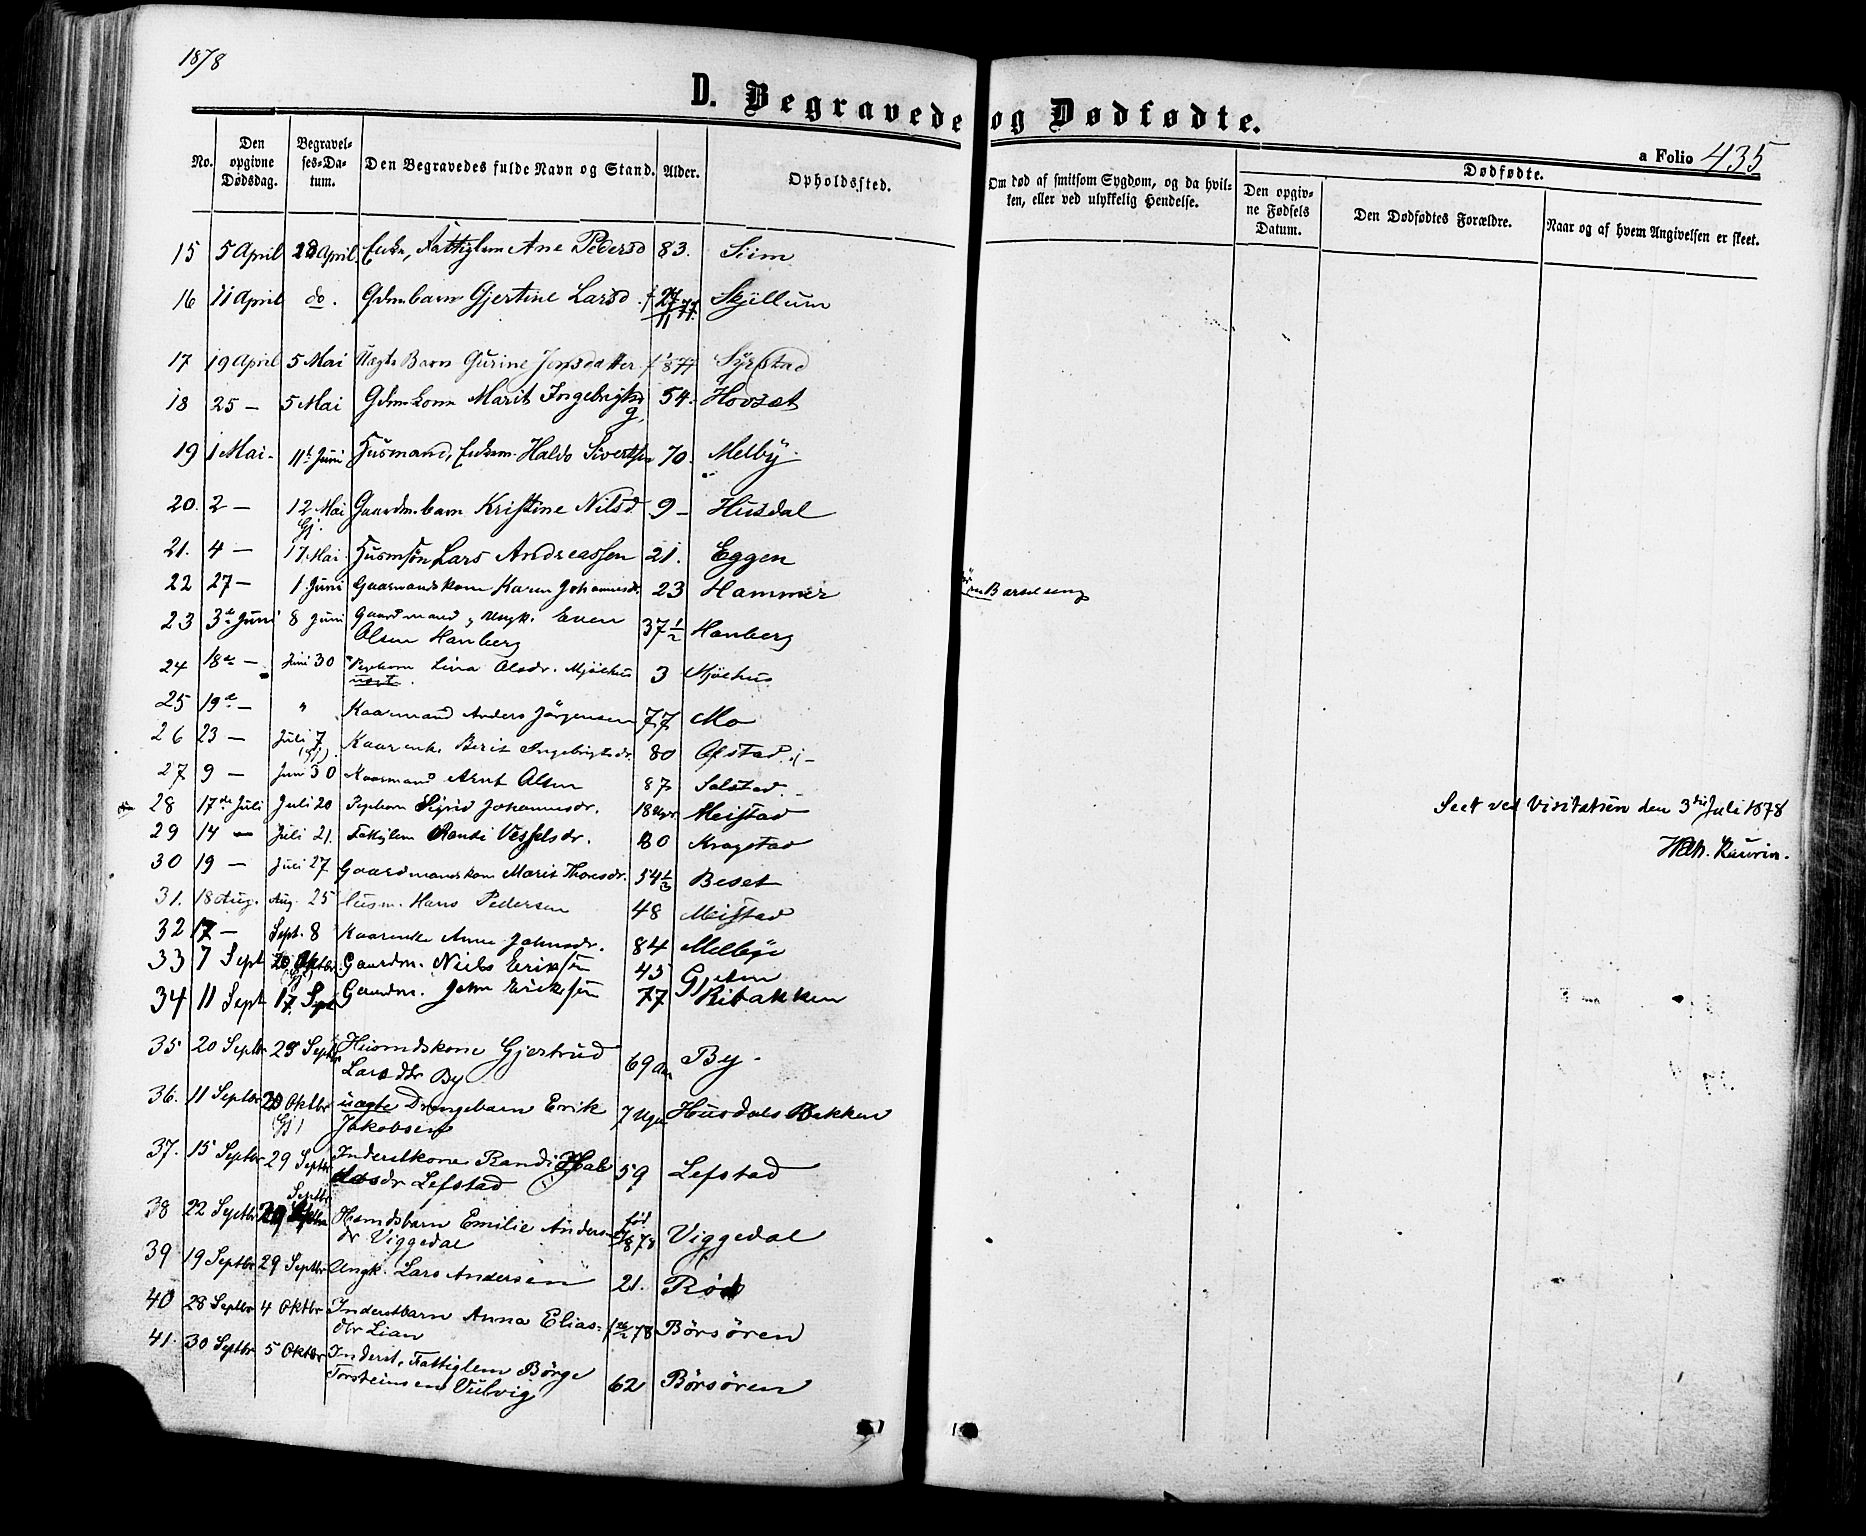 1878
D. Begravede og Dødfødte.
a Folio 435
No. | Den opgivne Dødsdag. | Begravelses-Datum. | Den Begravedes fulde Navn og Stand. | Alder. | Opholdssted. | Om død af smitsom Sygdom, og da hvilken, eller ved ulykkelig Hendelse. | Dødfødte. | Den opgivne Fødsels Datum. | Den Dødfødtes Forældre. | Naar og af hvem Angivelsen er skeet.
15 5 April 28 April Enke, Fattiglem Ane Pedersd 83. Siim
16 11 April do. Gdmbarn Gjertine Larsd Skjellum
17 19 April 5 Mai Uægte Barn Gurine Jonsdatter Syrstad
18 25 — 5 Mai Gdmkone Marit Ingebrigtsd 54. Hovsæt
19 1 Mai 11 Juni Husmand, Enkem. Haldo Sivertsen 70. Melby
20. 2 — 12 Mai Gj. Gaardmbarn Kristine Nilsd 9 — Husdal
21. 4 — 17 Mai Husmsøn Lars Andreassen 21. Eggen
22 27 — 1 Juni Gaarmandskone Karen Johannesdr 23 Hammer Barselseng
23 3de Juni 8 Juni Gaardmand, Ungk. Even Olsen Hanberg 37½ Hanberg
24 18de — Juni 30 Pigebarn Lina Olsdr. Mjølhus uægt. 3 Mjølhus
25 19de — " Kaarmand Anders Jørgensen 77 Mo
26 23 — Juli 7 (Gj) Kaarenk. Berit Ingebrigtsdr 80 Ofstad
27 9 — Juni 30 Kaarmand Arnt Olsen 87 Solstad
28 17de Juli Juli 20 Pigebarn Sigrid Johannesdr. 18 Uger Meistad
29 14 — Juli 21. Fattiglem Randi Vesselsdr. 80 Kragstad
30 19 — Juli 27 Gaardmandskone Marit Thoresdr. Beset
31. 18 Aug. Aug. 25 Husm. Hans Pedersen 48 Meistad
32 17 — Sept. 8 Kaarenke Anne Johnsdr. 84 Melbye
33 7 Sept 20 Oktbr. (Gj) Gaardm. Niels Eriksen 43
34 11 Sept 17 Sept Gaardm. John Eriksen 77 Ribakken
35 20 Septbr 29 Septbr Husmdskone Gjertrud Larsdtr By 69 Aar By
36. 11 Septbr 20 Oktbr (Gj) uægte Drengebarn Erik Jakobsen 7 Uger Husdals Bakken
37. 15 Septbr 29 Septbr Inderstkone Randi Haldosdr Lefstad 59 Lefstad
38 22 Septbr 29 Septbr Hsmdsbarn Emilie Andersdr Viggedal Viggedal
39 19 Septbr 29 Septbr Ungk. Lars Andersen 21. Rød
40 28 Septbr 4 Oktbr Inderstbarn Anna Eliasdtr Lian Børsøren
41. 30 Septbr 5 Oktbr Inderst, Fattiglem Børge Torsteinsen Viihvig 62 Børsøren
Seet ved Visitatsen den 3die Juli 1878